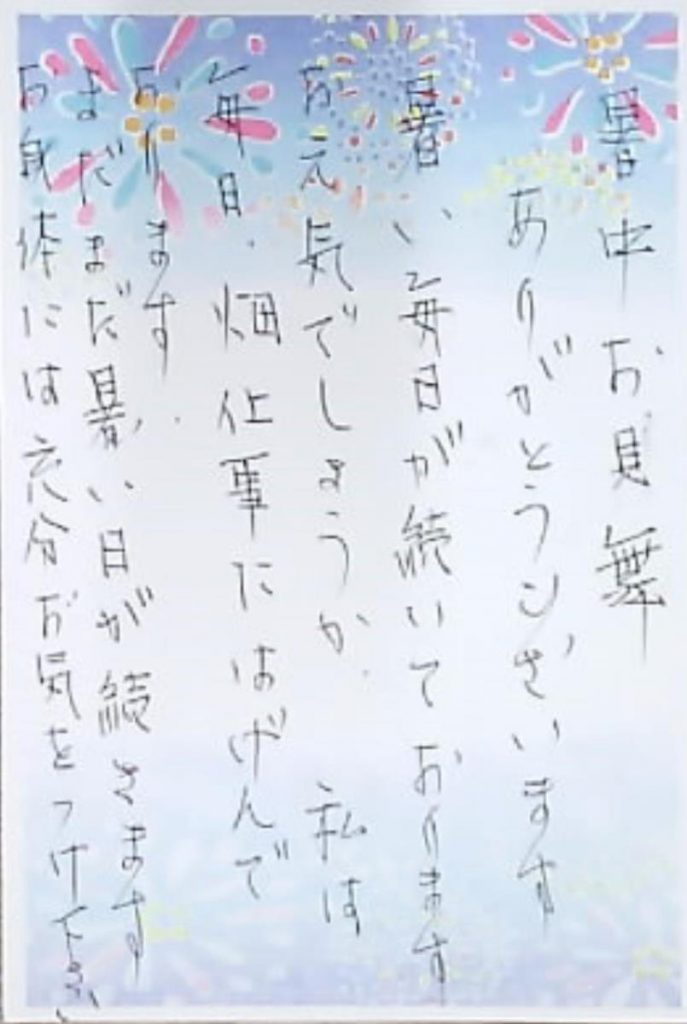 暑中お見舞
ありがとうございます
暑い毎日が続いております
お元気でしょうか 私は
毎日、畑仕事にはげんで
おります
まだまだ暑い日が続きます
お身体には充分お気をつけ下さい